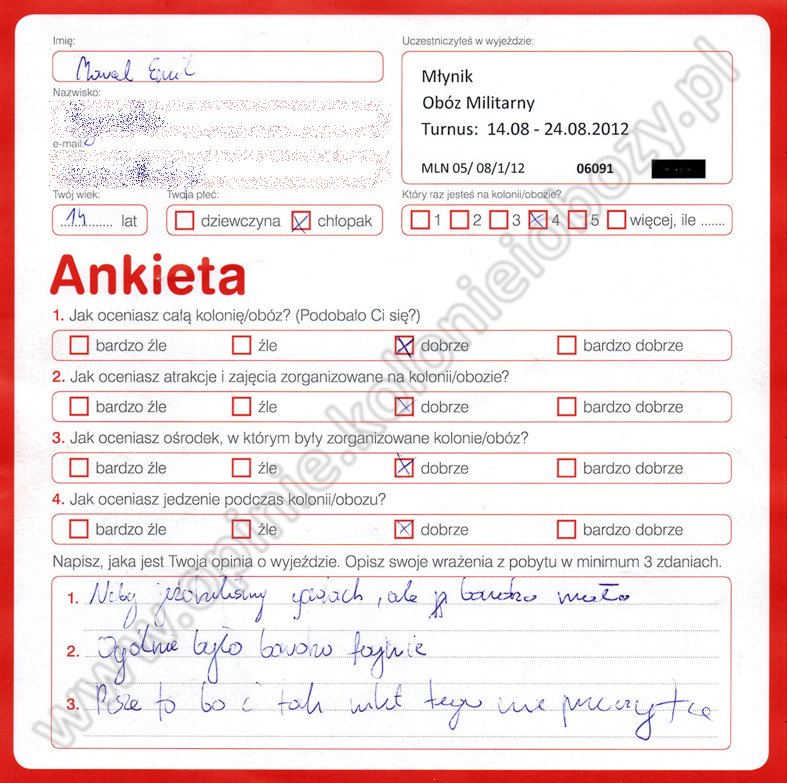 Imię:
Uczestniczyłeś w wyjeździe:
Emil
Młynik
Obóz Militarny
Turnus: 14.08 - 24.08.2012
MLN 05/ 08/1/12 06091
Nazwisko:
e-mail:
Twój wiek: Twoja płeć: Który raz jesteś na kolonii/obozie?
14 lat dziewczyna chłopak 1 2 3 4 5 więcej, ile .......
Ankieta
1. Jak oceniasz całą kolonię/obóz? (Podobało Ci się?)
bardzo źle źle dobrze bardzo dobrze
2. Jak oceniasz atrakcje i zajęcia zorganizowane na kolonii/obozie?
bardzo źle źle dobrze bardzo dobrze
3. Jak oceniasz ośrodek, w którym były zorganizowane kolonie/obóz?
bardzo źle źle dobrze bardzo dobrze
4. Jak oceniasz jedzenie podczas kolonii/obozu?
bardzo źle źle dobrze bardzo dobrze
Napisz, jaka jest Twoja opinia o wyjeździe. Opisz swoje wrażenia z pobytu w minimum 3 zdaniach.
1. Niby jeździliśmy , ale bardzo mało
2. Ogólnie było bardzo fajnie
3. Pisze to bo i tak nikt tego nie przeczyta
www.opinie.kolonieiobozy.pl